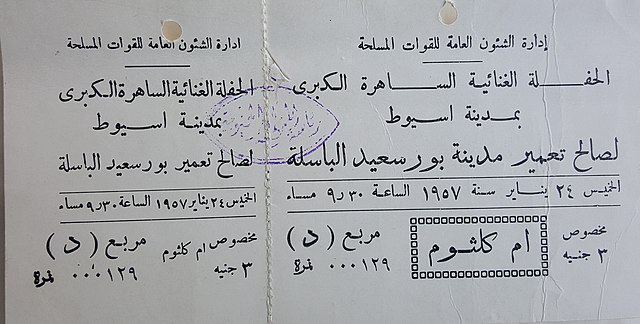 إدارة الشئون العامة للقوات المسلحة
الحفلة الغنائية الساهرة الكبرى
بمدينة اسيوط
لصالح تعمير مدينة بور سعيد الباسلة
الخميس ٢٤ يناير سنة ١٩٥٧ الساعة ٩٫٣٠ مساء
مخصوص
٣ جنيه
ام كلثوم
مربع ( د )
٠٠٠١٢٩ نمرة
ادارة الشئون العامة للقوات المسلحة
الحفلة الغنائية الساهرة الكبرى
بمدينة اسيوط
لصالح تعمير بور سعيد الباسلة
الخميس ٢٤ يناير ١٩٥٧ الساعة ٩٫٣٠ مساء
مخصوص
٣ جنيه
ام كلثوم
مربع ( د )
٠٠٠١٢٩ نمرة